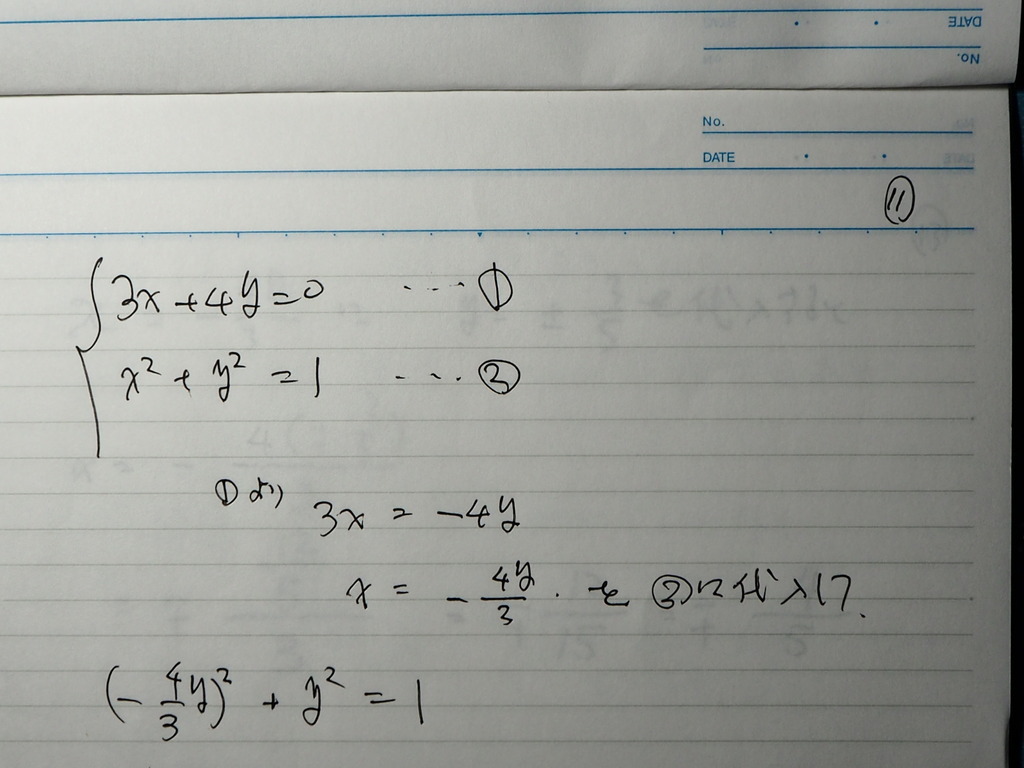 DATE
No.
No.
DATE
⑪
3x + 4y = 0 ････ ①
x² + y² = 1 ･･･ ②
①より 3x = -4y
x = -4y/3 . を ②に代入して
(-4/3 y)² + y² = 1